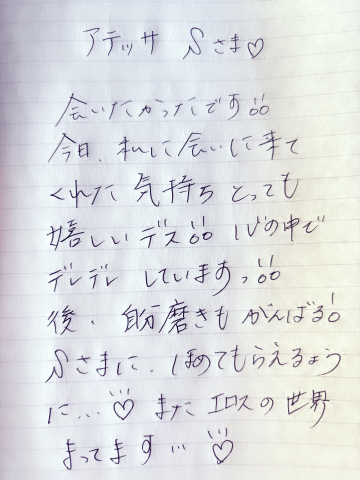 アテッサ Sさま♡
会いたかったです!!
今日、私に会いに来て
くれた気持ちとっても
嬉しいデス!! 心の中で
デレデレしていますっ!!
後、自分磨きもがんばる!
Sさまに、ほめてもらえるよう
に…♡ また エロスの世界
まってます…♡